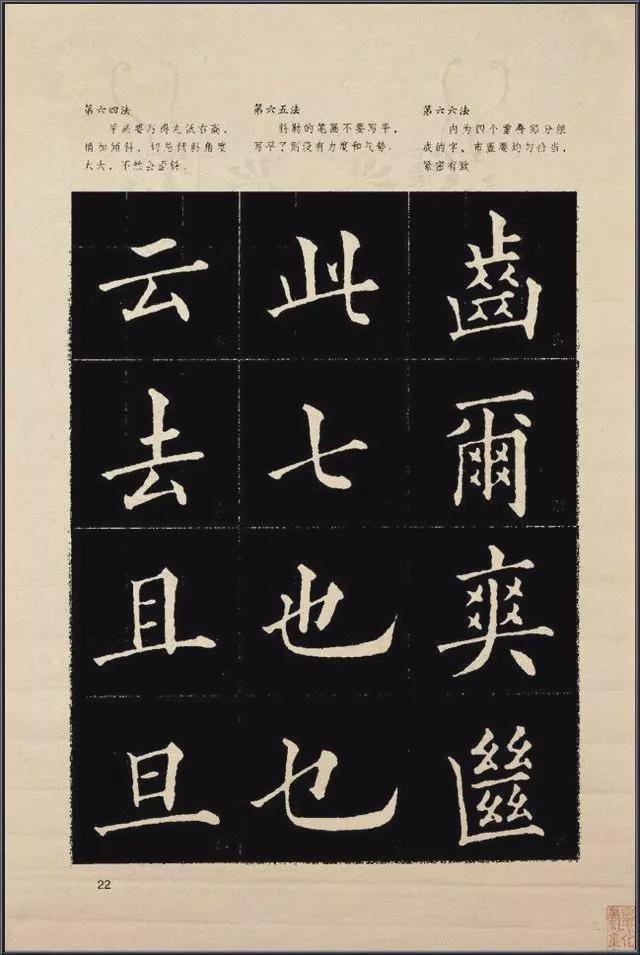 第六四法
平画要写得左低右高,
稍加倾斜,切忌倾斜角度
太大,不然会歪斜.
第六五法
斜勒的笔画不要写平,
写平了则没有力度和气势.
第六六法
内为四个重叠部分组
成的字,布置要均匀恰当,
紧密有致
云去且旦
此七也乜
齒爾爽㡭
22